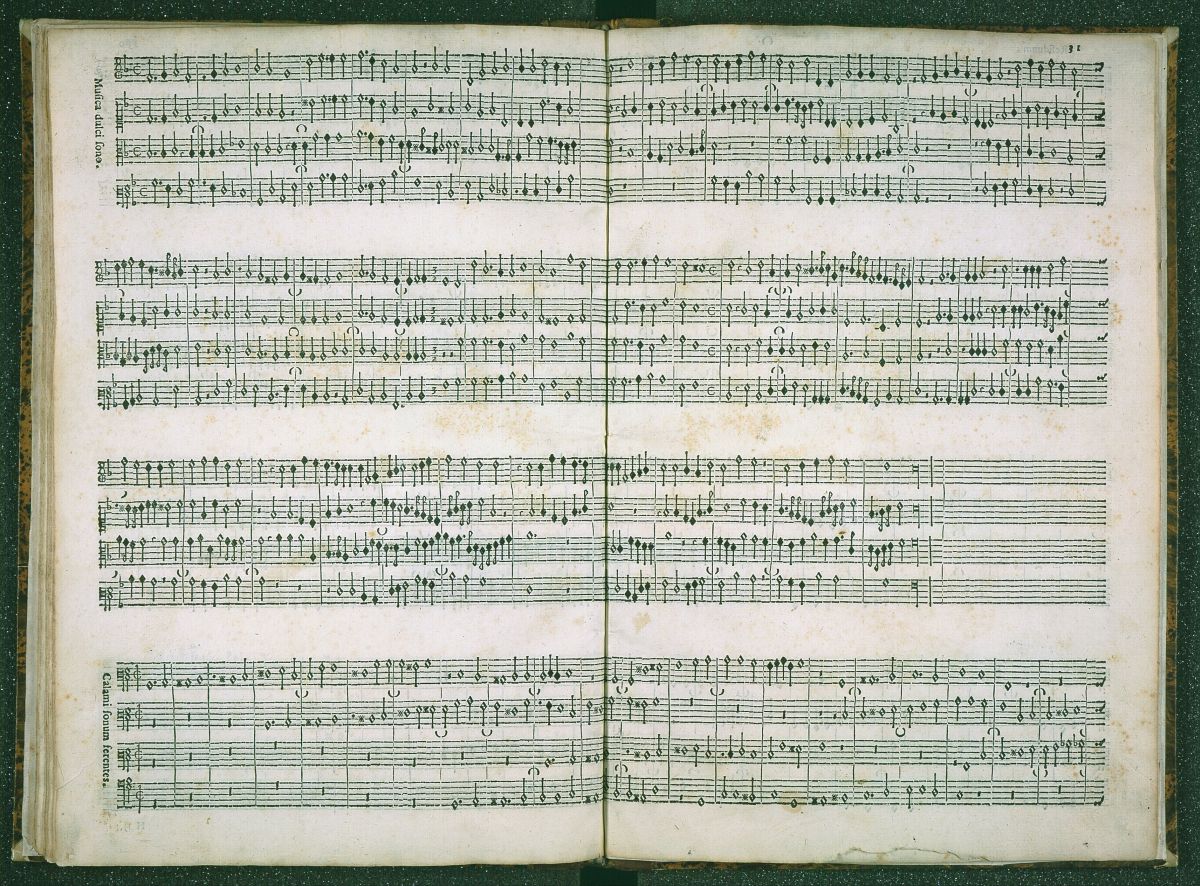 31
Muſica dulci ſono.
Calami ſonum ferentes.